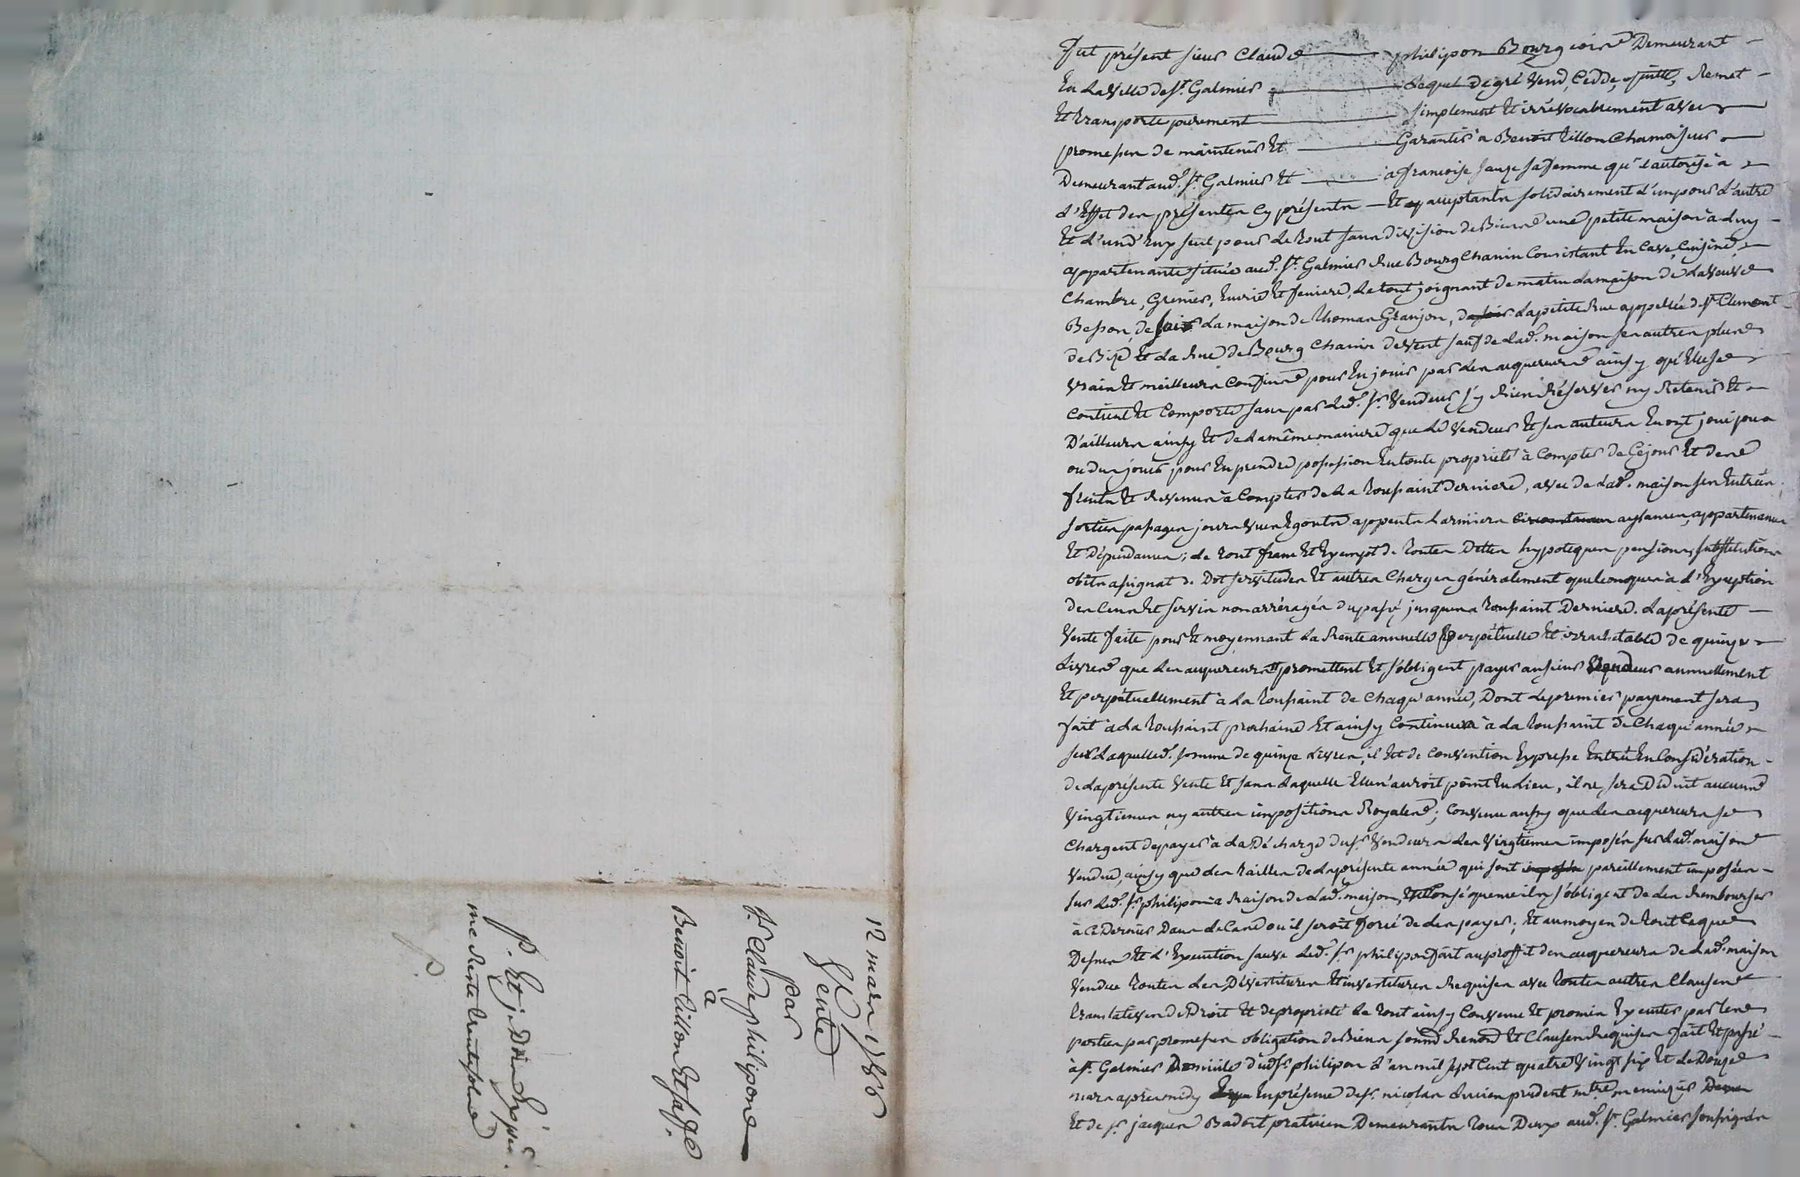 Fut présent sieur Claude philipon Bourgeois Demeurant
En la Ville de St. Galmier Lequel de gré Vend, Cedde, quitte, Remet
Et transporte purement simplement Et irrévocablement avec
promesse de maintenir Et Garantir à Benoit Villon Chamoiseur
Demeurant aud. St. Galmier Et à francoise sauze sa femme qu'il autorise à
L'Effet des présentes cy présents Et acceptants solidairement L'un pour L'autre
Et L'un d'Eux seul pour Le tout sans division de Biens une petite maison à Luy
appartenante située aud. St. Galmier Rue Bourg Chanin Consistant En Cave, Cuisine,
Chambre, Grenier, Ecurie Et feniere, Le tout joignant de matin La maison de La veuve
Besson, de soir La maison de Thomas Granjon, La petite Rue appellée de St. Clement
de Bize Et La Rue de Bourg Chanin de Vent sauf de Lad. maison ses autres plus
Vrais Et meilleurs Confins pour En jouir par Les acquereurs ainsy qu'Elle se
Contient Et Comporte sans par Led. sr. Vendeur s'y Rien Réserver ny Retenir Et
D'ailleurs ainsy Et de La même maniere que Le Vendeur Et ses auteurs En ont joui jouu
ou du jouir pour En prendre possession En toute proprieté à Compter de Ce jour Et des
fruits Et Revenus à Compter de La Toussaint derniere, avec de Lad. maison ses Entrées
sorties passages jours Vues Egouts appents Larmiers circonstances aysances, appartenances
Et Dépendances; Le tout franc Et Exempt de toutes Dettes hypoteques pensions, substitutions
obits assignat de Dot servitudes Et autres Charges généralement quelconques à L'Exception
des Cens Et servis non arréragés du passé jusques a Toussaint Derniere. La présente
Vente faite pour Et moyennant La Rente annuelle perpétuelle Et irrachetable de quinze
Livres que Les acquereurs promettent Et s'obligent payer au sieur Vendeur annuellement
Et perpétuellement à La Toussaint de Chaqu'année, Dont Le premier payement sera
fait à La Toussaint prochaine Et ainsy Continuer à La Toussaint de Chaqu'année
sur Laquelle somme de quinze Livres, il Est de Convention Expresse Entrée En Considération
de La présente Vente Et sans Laquelle Elle n'auroit point Eu Lieu, il ne sera Déduit aucuns
Vingtiemes ny autres impositions Royales; Convenu aussy que Les acquereurs se
Chargent de payer à La décharge du sr. Vendeur Les Vingtiemes imposés sur Lad. maison
Vendue, ainsy que Les Tailles de La présente année qui sont imposées pareillement imposées
sur Led. sr. philipon à Raison de Lad. maison, Et Conséquence ils s'obligent de Les Rembourser
à Ce Dernier Dans Le Cas où il seroit forcé de Les payer; Et au moyen de tout Ce que
Dessus Et L'Execution sauve Led. sr. philipon fait au proffit des acquereurs de Lad. maison
Vendue Toutes Les Dévestitures Et investitures Requises avec toutes autres Clauses
translatives de Droit Et de proprieté Le tout ainsy Convenu Et promis Executer par Les
parties par promesses obligation de Biens soumis Renon. Et Clauses Requises fait Et passé
à St. Galmier Domicile dud. sr. philipon L'an mil sept Cent quatre Vingt six Et Le Douze
mars apres midy En présence de sr. nicolas prudent mtre. menuizier
Et de sr. jacques Badoit praticien Demeurants Tous Deux aud. St. Galmier soussignés
12 mars 1786
Vente
par
Sr. Claude philipon
à
Benoit Villon Et sa fe
P. Et j. D
une Rente
P.